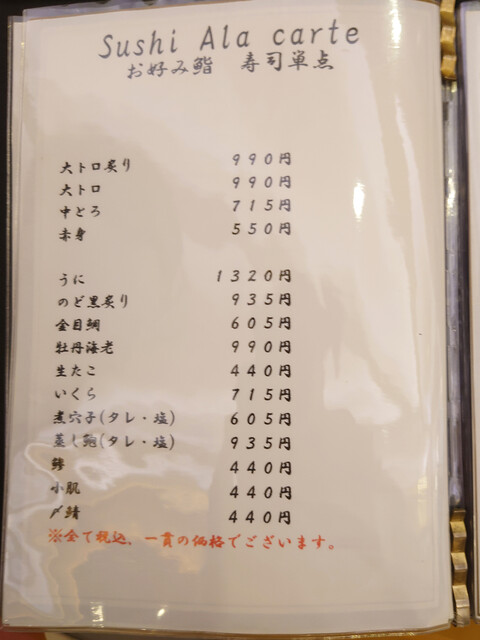 Sushi Ala carte
お好み鮨 寿司単点
大トロ炙り 990円
大トロ 990円
中とろ 715円
赤身 550円
うに 1320円
のど黒炙り 935円
金目鯛 605円
牡丹海老 990円
生たこ 440円
いくら 715円
煮穴子(タレ・塩) 605円
蒸し鮑(タレ・塩) 935円
440円
小肌 440円
〆鯖 440円
※全て税込、一貫の価格でございます。